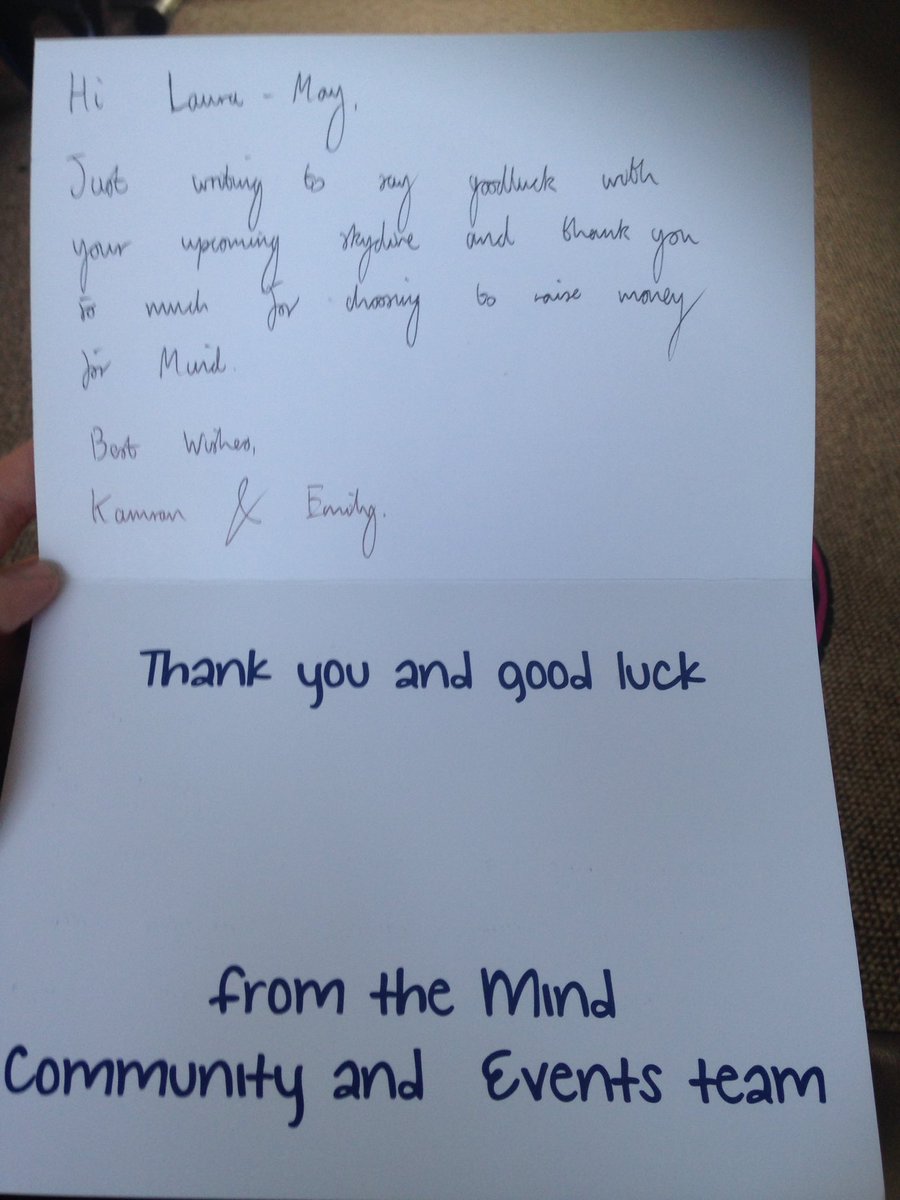 Hi Laura - May,
Just writing to say goodluck with
your upcoming skydive and thank you
so much for choosing to raise money
for Mind.
Best Wishes,
Kamran & Emily.
Thank you and good luck
from the Mind
Community and Events team